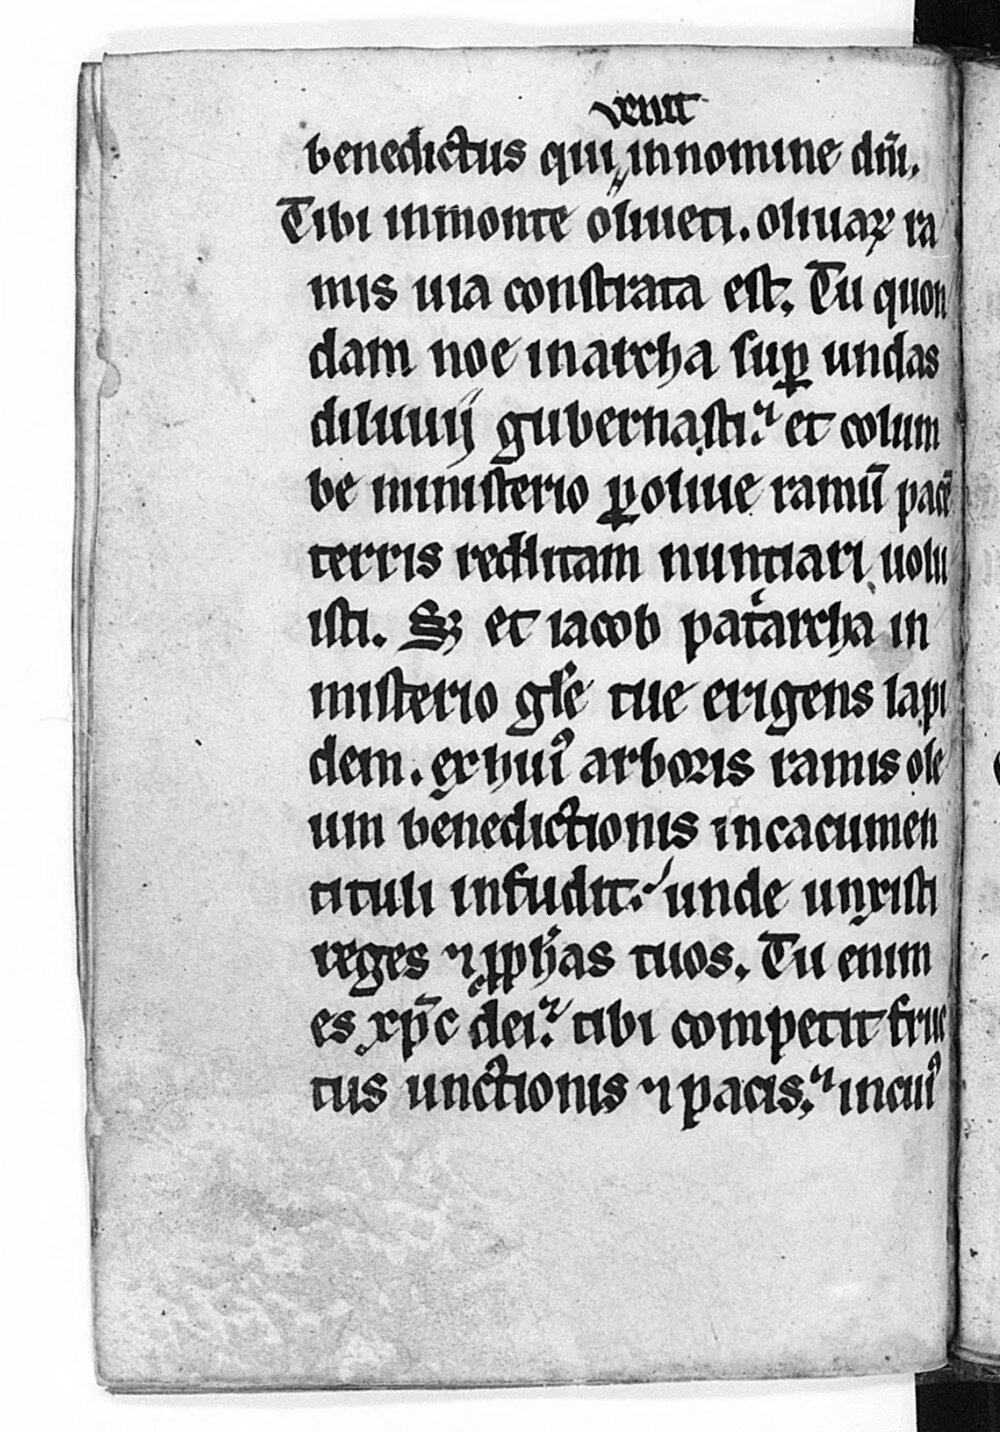 venit
benedictus qui innomine dn̄i.
Tibi inmonte oliueti. oliuaꝝ ra
mis uia constrata est. Tu quon
dam noe inarcha suꝑ undas
diluuij gubernasti. et colum
be ministerio ꝑ oliue ramū pacē
terris redditam nuntiari uolu
isti. Sꝫ et iacob patͥarcha in
misterio gl̄e tue erigens lapi
dem. ex huiꝰ arboris ramis ole
um benedictionis incacumen
tituli infudit. unde unxisti
reges ⁊ ꝓph̄as tuos. Tu enim
es xp̄c dei. tibi competit fruc
tus unctionis ⁊ pacis. incuiꝰ